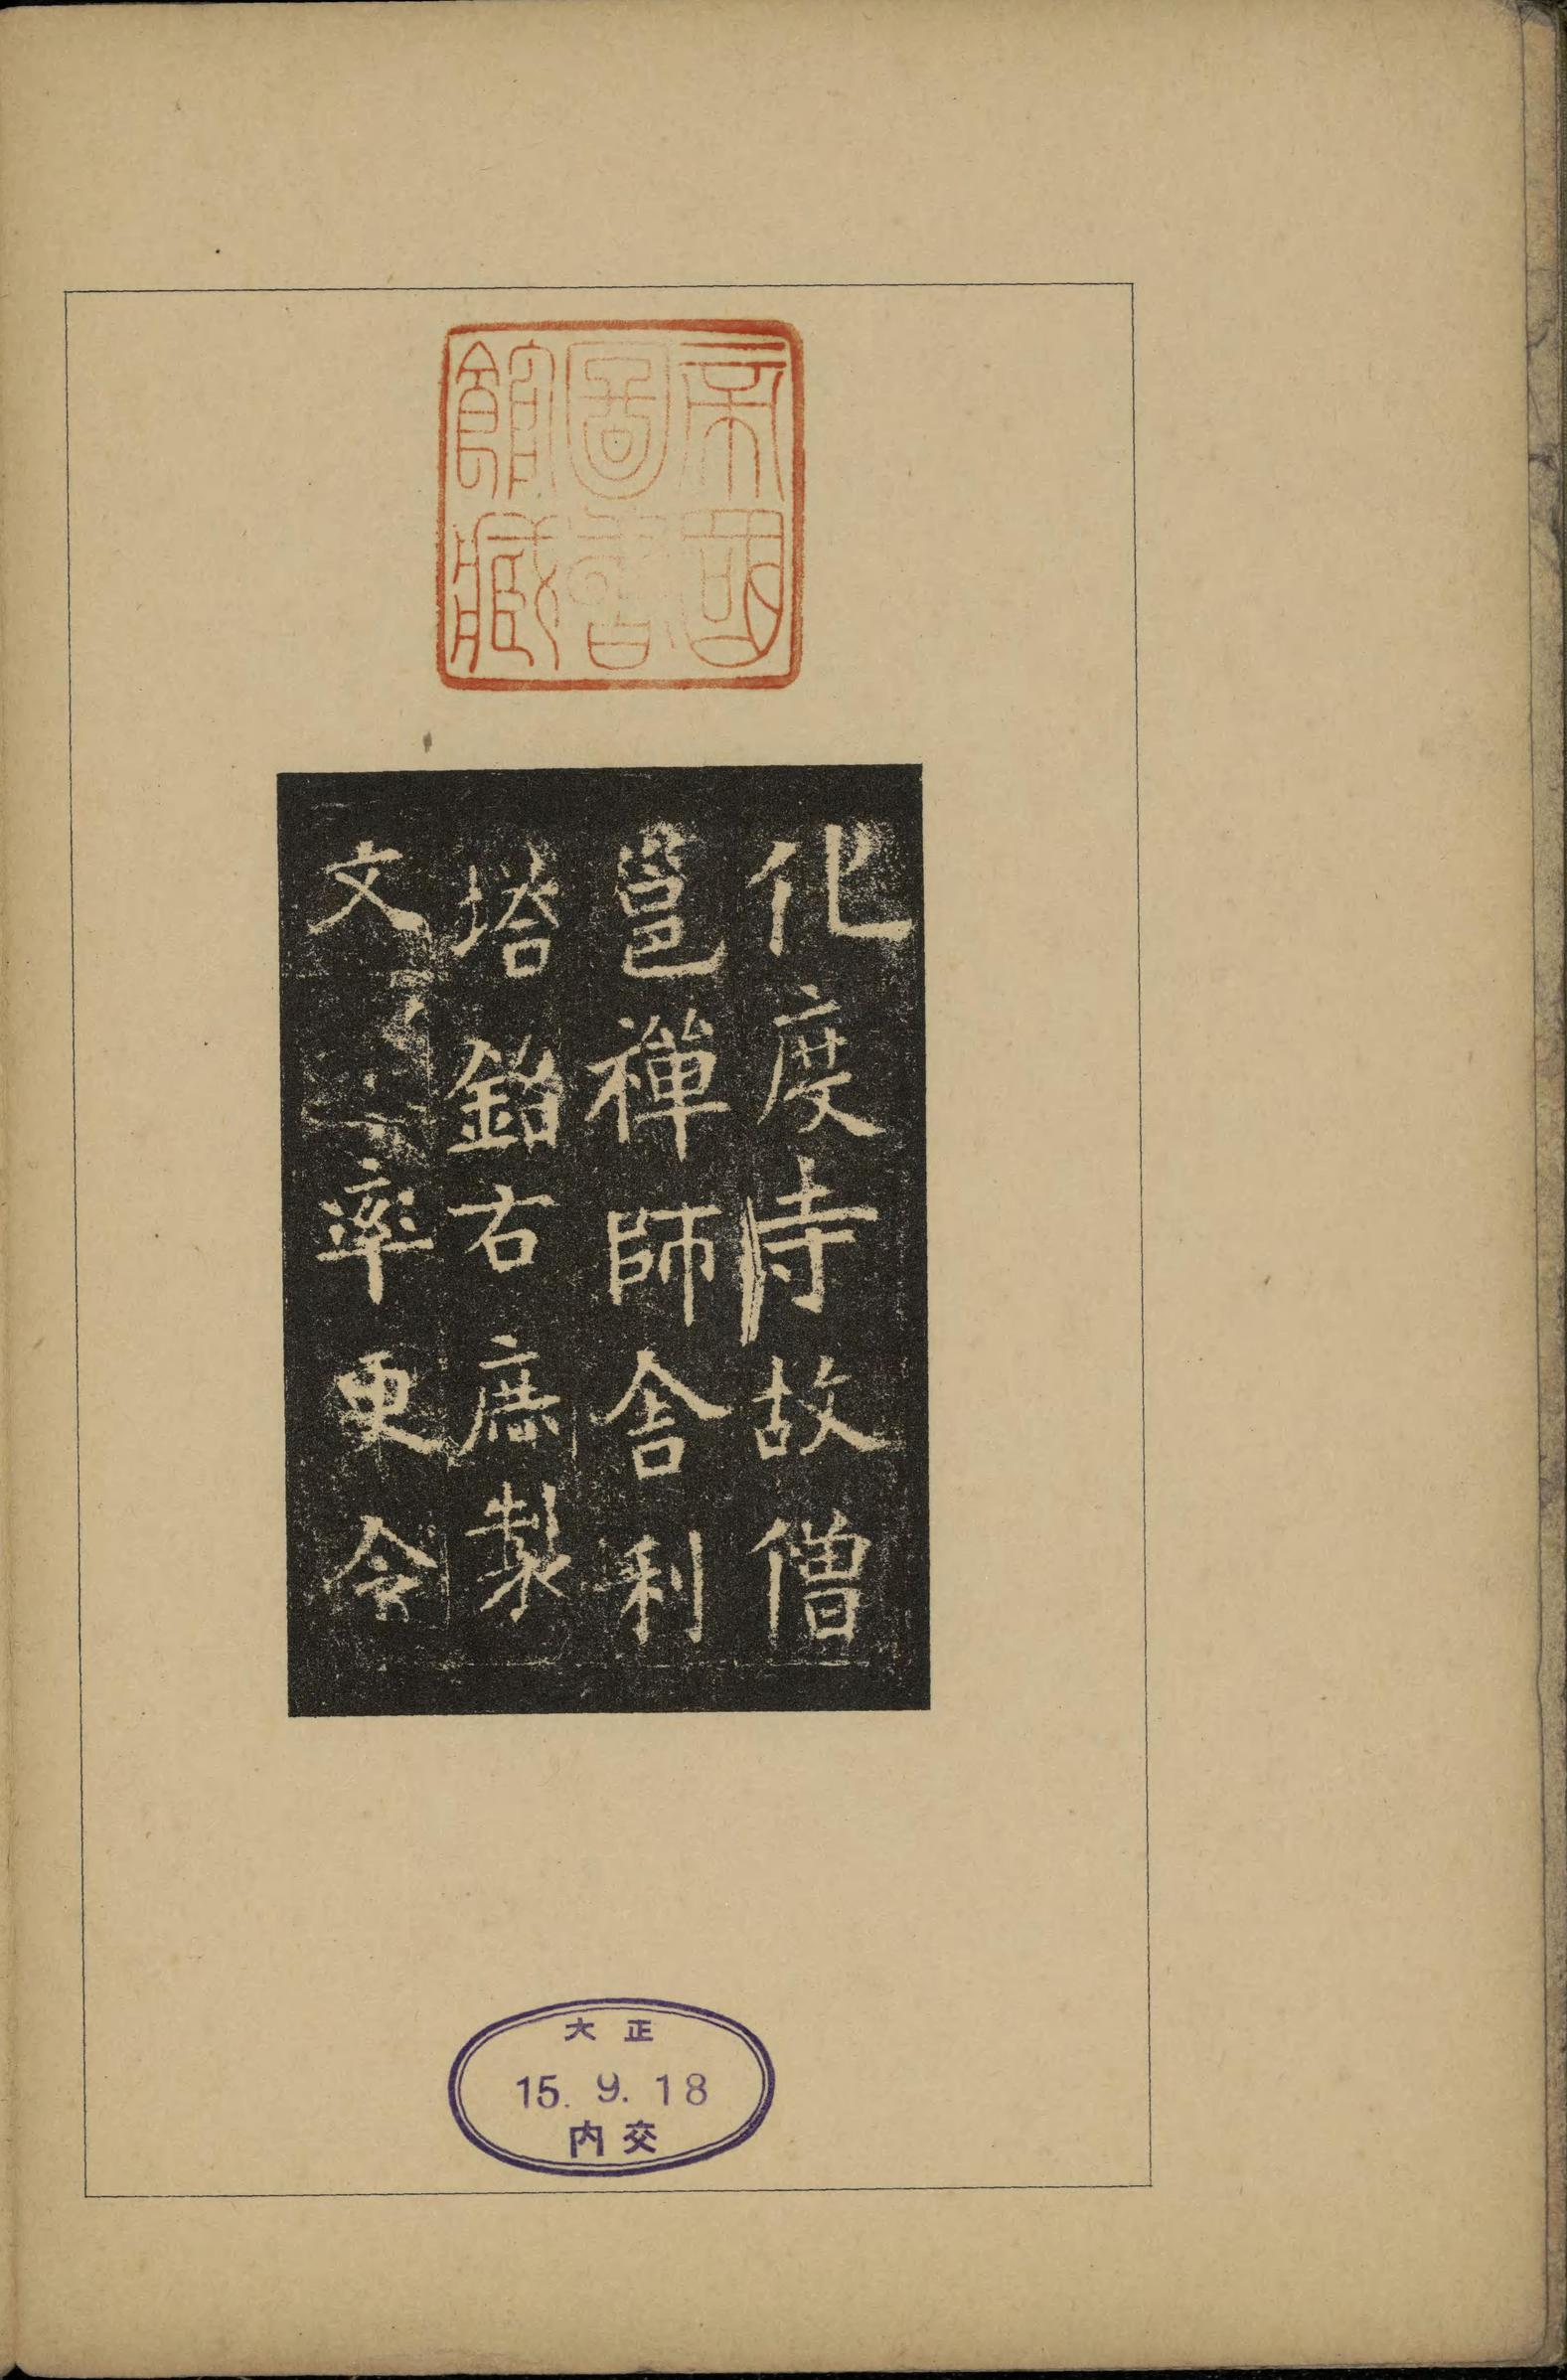 帝國
圖書
館藏
化度寺故僧
邕禪師舍利
塔銘右庶製
文率更令
大正
15. 9. 18
内交